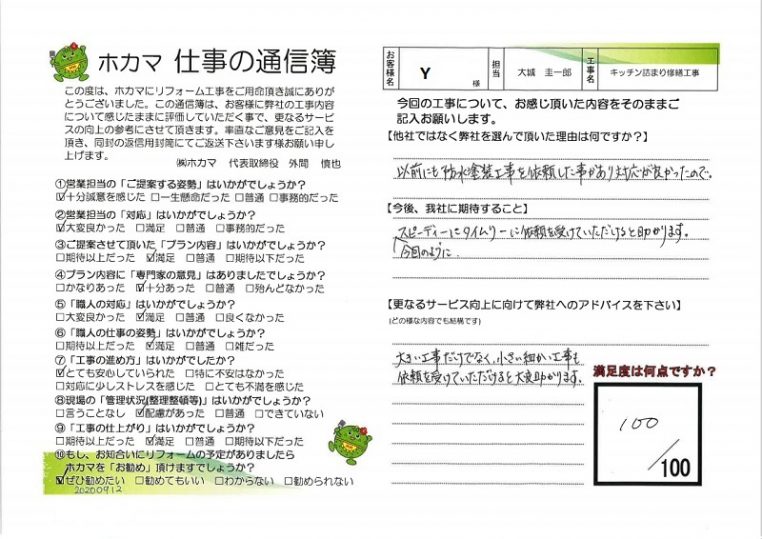 ホカマ 仕事の通信簿
この度は、ホカマにリフォーム工事をご用命頂き誠にありが
とうございました。この通信簿は、お客様に弊社の工事内容
について感じたままに評価していただく事で、更なるサービ
スの向上の参考にさせて頂きます。率直なご意見をご記入を
頂き、同封の返信用封筒にてご返送下さいます様お願い申し
上げます。
㈱ホカマ 代表取締役 外間 慎也
①営業担当の「ご提案する姿勢」はいかがでしょうか?
☑十分誠意を感じた □一生懸命だった □普通 □事務的だった
②営業担当の「対応」はいかがでしょうか?
☑大変良かった □満足 □普通 □事務的だった
③ご提案させて頂いた「プラン内容」はいかがでしょうか?
□期待以上だった ☑満足 □普通 □期待以下だった
④プラン内容に「専門家の意見」はありましたでしょうか?
□かなりあった ☑十分あった □普通 □殆んどなかった
⑤「職人の対応」はいかがでしょうか?
□大変良かった ☑満足 □普通 □良くなかった
⑥「職人の仕事の姿勢」はいかがでしょうか?
□期待以上だった ☑満足 □普通 □雑だった
⑦「工事の進め方」はいかがでしたか?
☑とても安心していられた □特に不安はなかった
□対応に少しストレスを感じた □とても不満を感じた
⑧現場の「管理状況(整理整頓等)」はいかがでしょうか?
□言うことなし ☑配慮があった □普通 □できていない
⑨「工事の仕上がり」はいかがでしょうか?
□期待以上だった ☑満足 □普通 □期待以下だった
⑩もし、お知合いにリフォームの予定がありましたら
ホカマを「お勧め」頂けますでしょうか?
☑ぜひ勧めたい □勧めてもいい □わからない □勧められない
20200912
お客様名 Y 様 担当 大城 圭一郎 工事名 キッチン詰まり修繕工事
今回の工事について、お感じ頂いた内容をそのままご
記入お願いします。
【他社ではなく弊社を選んで頂いた理由は何ですか?】
以前にも防水塗装工事を依頼した事があり対応が良かったので。
【今後、我社に期待すること】
スピーディーにタイムリーに依頼を受けていただけると助かります。
今回のように
【更なるサービス向上に向けて弊社へのアドバイスを下さい】
(どの様な内容でも結構です)
大きい工事だけでなく、小さい細かい工事も
依頼を受けていただけると大変助かります。
満足度は何点ですか?
100
/100